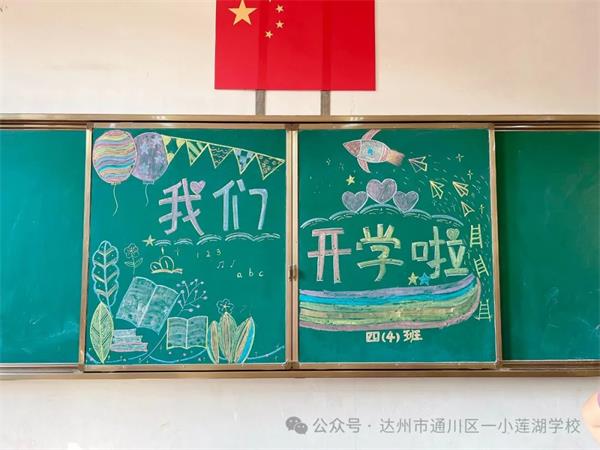 我们
1 2 3
a b c
开学啦
四(4)班
公众号·达州市通川区一小莲湖学校